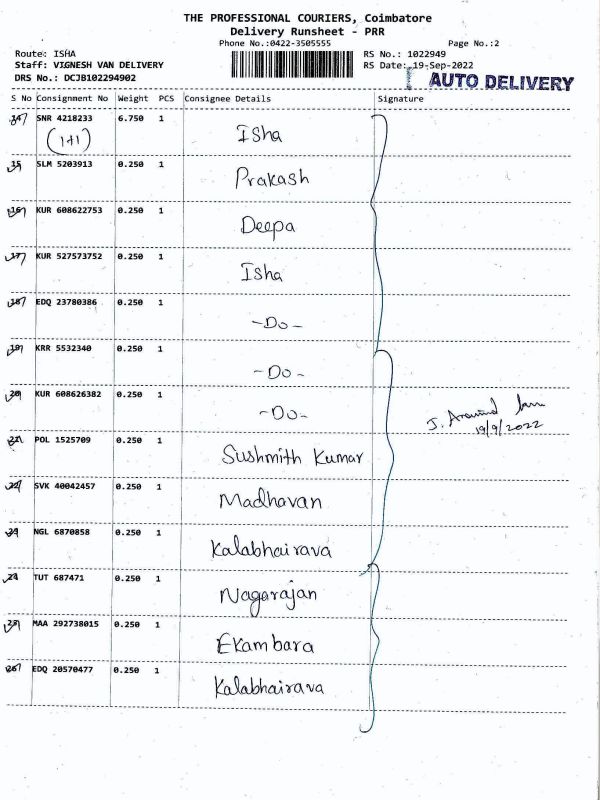 THE PROFESSIONAL COURIERS, Coimbatore
Delivery Runsheet - PRR
Phone No.:0422-3505555 Page No.:2
Route: ISHA RS No.: 1022949
Staff: VIGNESH VAN DELIVERY RS Date: 19-Sep-2022
DRS No.: DCJB102294902 AUTO DELIVERY
S No Consignment No Weight PCS Consignee Details Signature
14 SNR 4218233 6.750 1 Isha
(1+1)
15 SLM 5203913 0.250 1 Prakash
16 KUR 608622753 0.250 1 Deepa
17 KUR 527573752 0.250 1 Isha
18 EDQ 23780386 0.250 1 -Do-
19 KRR 5532340 0.250 1 -Do-
20 KUR 608626382 0.250 1 -Do-
J. Aravind
19/9/2022
21 POL 1525709 0.250 1 Sushmith Kumar
22 SVK 40042457 0.250 1 Madhavan
23 NGL 6870858 0.250 1 Kalabhairava
24 TUT 687471 0.250 1 Nagarajan
25 MAA 292738015 0.250 1 Ekambara
26 EDQ 20570477 0.250 1 Kalabhairava